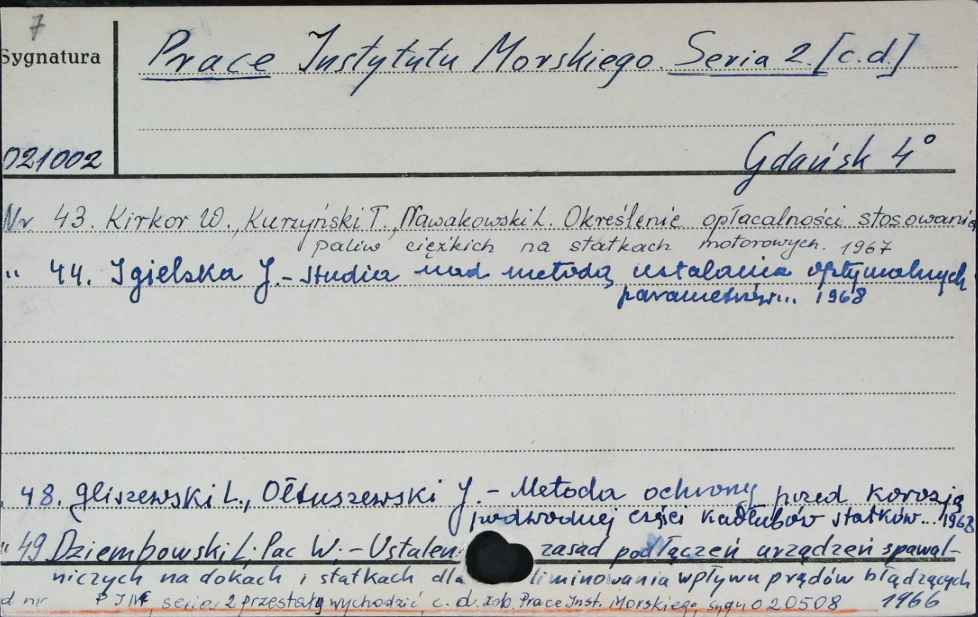 7
Sygnatura
Prace Instytutu Morskiego. Seria 2. [c.d.]
021002
Gdańsk 4°
Nr 43. Kirkor W., Kurzyński T., Nawakowski L. Określenie opłacalności stosowania
paliw ciężkich na statkach motorowych. 1967
" 44. Igielska J. - Studia nad metodą ustalania optymalnych
parametrów... 1968
48. Gliszewski L., Ołtuszewski J. - Metoda ochrony przed korozją
podwodnej części kadłubów statków... 1968
" 49 Dziembowski L. Pac W. - Ustalen zasad podłączeń urządzeń spawal-
niczych na dokach i statkach dla liminowania wpływu prądów błądzących
d nr PIM, seria 2 przestały wychodzić, c. d. zob. Prace Inst. Morskiego, sygn 020508 1966